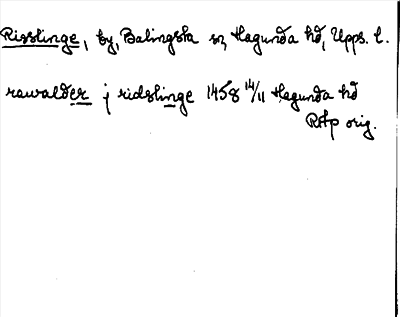 Risslinge, by, Balingsta sn, Hagunda hd, Upps. l.
rawalder j ridslinge 1458 14/11 Hagunda hd
RAp orig.